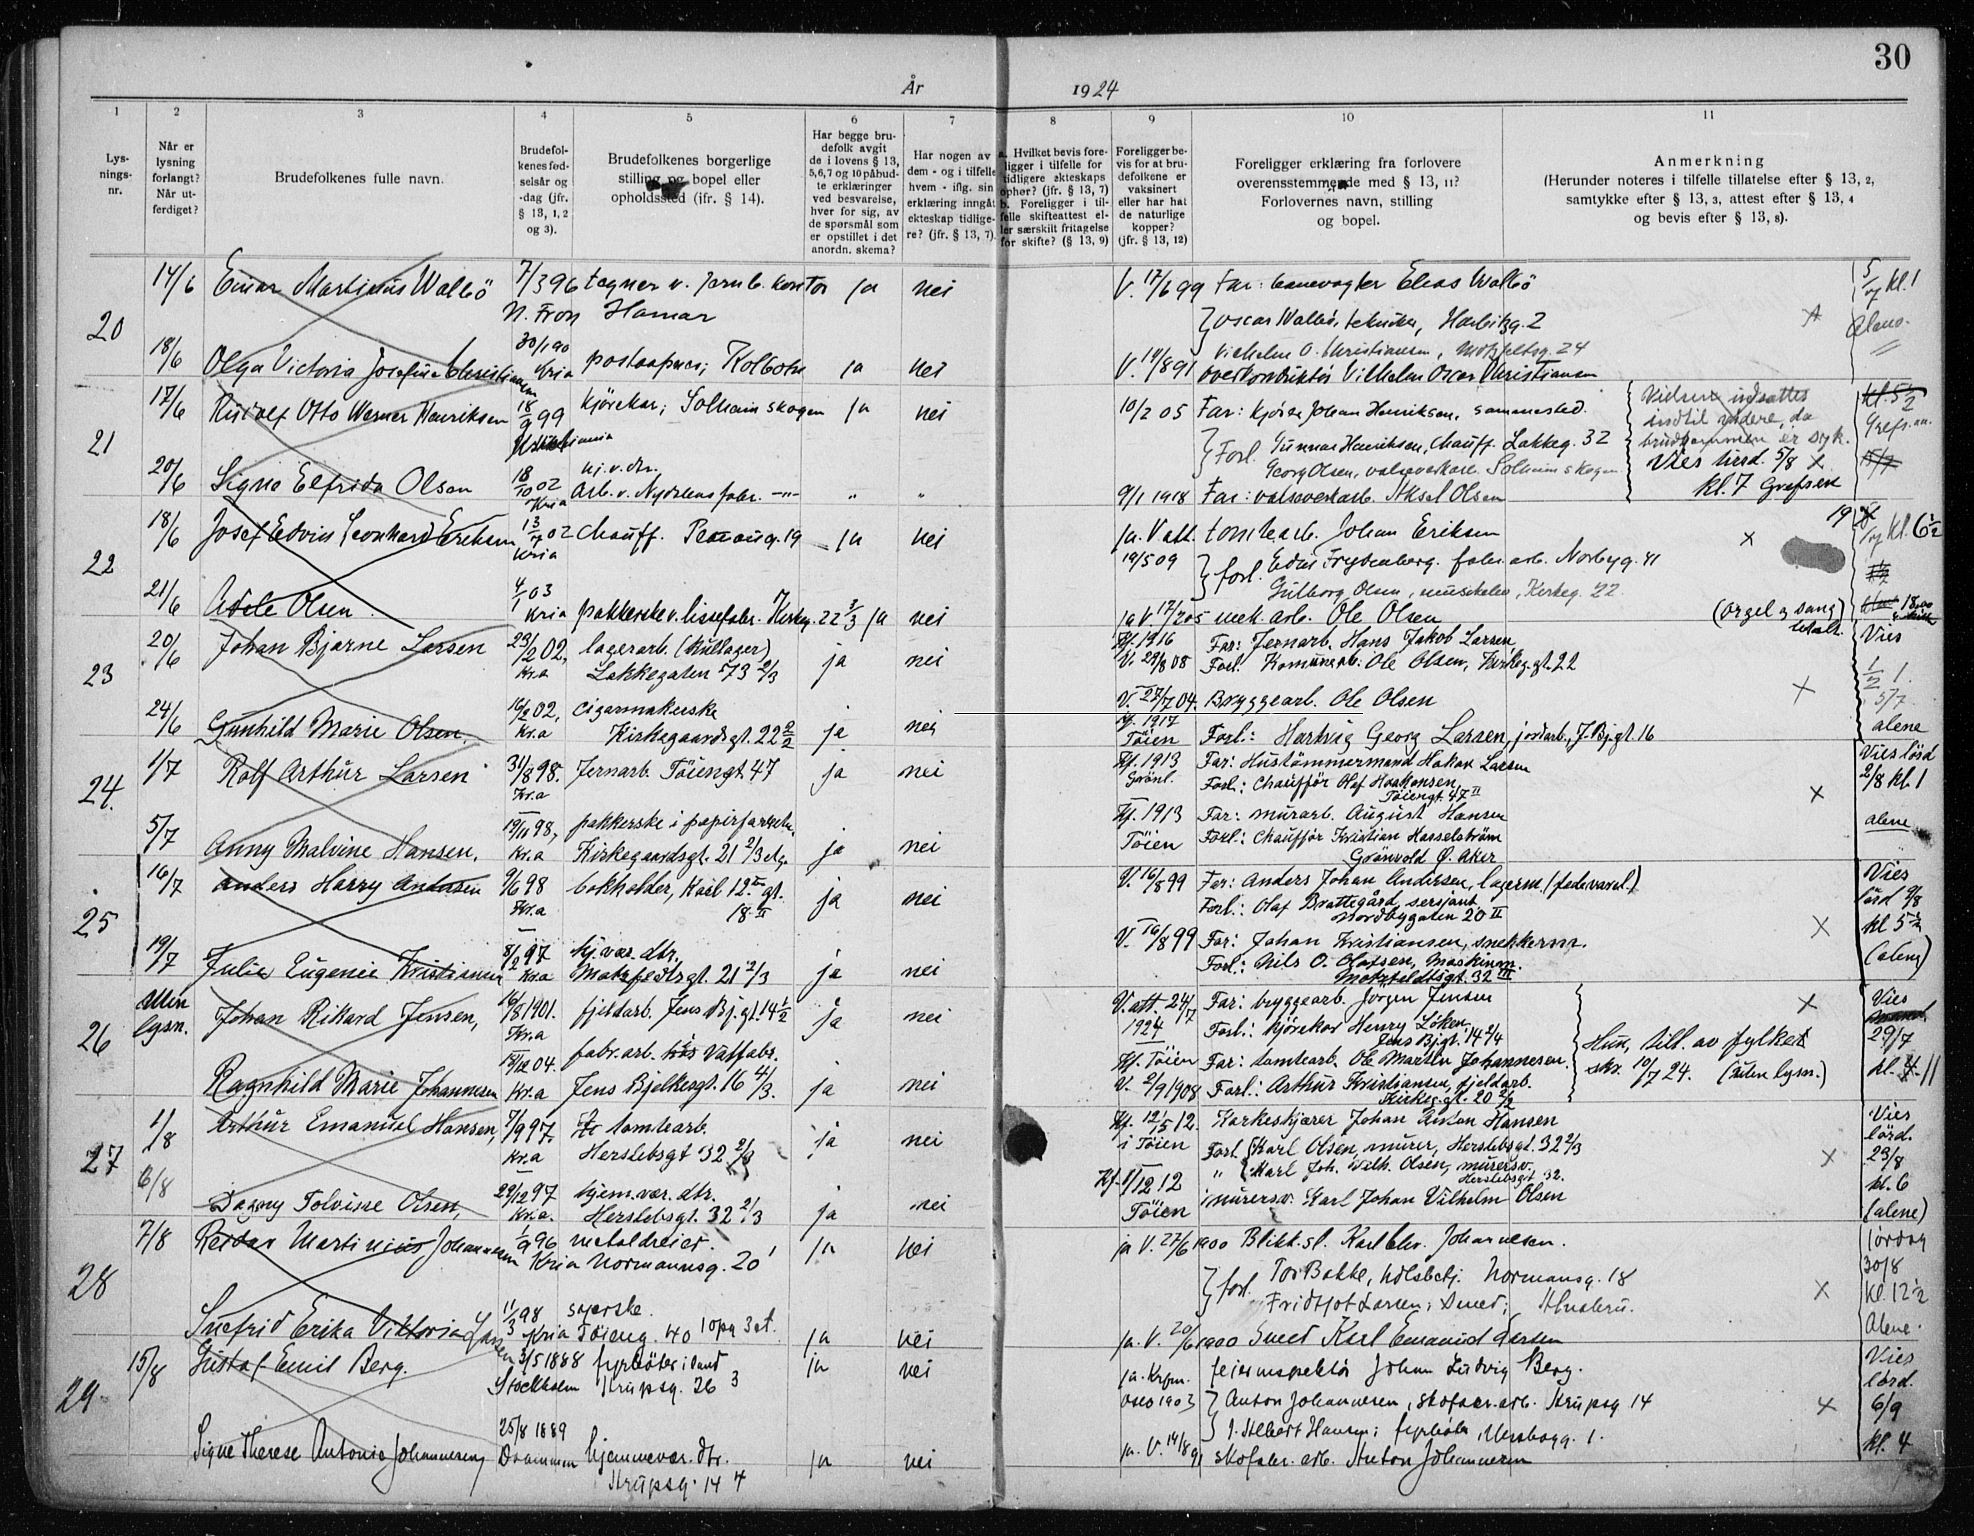 30
År 1924
1 2 3 4 5 6 7 8 9 10 11
Lys-
nings-
nr.
Når er
lysning
forlangt?
Når ut-
ferdiget?
Brudefolkenes fulle navn.
Brudefol-
kenes fød-
selsår og
-dag (jfr.
§ 13, 1, 2
og 3).
Brudefolkenes borgerlige
stilling og bopel eller
opholdssted (jfr. § 14).
Har begge bru-
defolk avgit
de i lovens § 13,
5,6,7 og 10 påbud-
te erklæringer
ved besvarelse,
hver for sig, av
de spørsmål som
er opstillet i det
anordn. skema?
Har nogen av
dem - og i tilfelle
hvem - iflg. sin
erklæring inngåt
ekteskap tidlige-
re? (jfr. § 13, 7).
a. Hvilket bevis fore-
ligger i tilfelle for
tidligere ekteskaps
opher? (jfr. § 13, 7)
b. Foreligger i til-
felle skifteattest el-
ler særskilt fritagelse
for skifte? (§ 13, 9)
Foreligger be-
vis for at bru-
defolkene er
vaksinert
eller har hat
de naturlige
kopper?
(jfr. § 13, 12)
Foreligger erklæring fra forlovere
overensstemmende med § 13, 11?
Forlovernes navn, stilling
og bopel.
Anmerkning
(Herunder noteres i tilfelle tillatelse efter § 13, 2,
samtykke efter § 13, 3, attest efter § 13, 4
og bevis efter § 13, 8).
20
14/6 Einar Martinius Walbö 7/3 96 tegner v. Jernb. kontor ja nei V. 17/6 99 Far: banevogter Elias Walbö 5/7 kl. 1
N. Fron Hamar
Oscar Walbö, tekniker, Harbitzg. 2 alene
30/1 90 Vilhelm O. Christiansen, Motzfeltsg. 24
18/6 Olga Victoria Josefine Christiansen Kria ja nei V. 14/8 91 overkonduktör Vilhelm Oscar Christiansen
21
17/6 Rudolf Otto Werner Henriksen 18/9 99 kjörekar, Solheim skogen ja nei 10/2 05 Far: kjörek. Johan Henriksen, sammested. Vielsen indsattes kl. 5 1/2
indtil videre, da
Forl. Gunnar Henriksen, chauff. Lakkeg. 32 brudgommen er syk.
20/6 Signe Elfrida Olsen 18/10 02 hj. v. dtr. Georg Olsen, valseverkarb. Solheim skogen Vies lörd. 5/8
Kria Arb. v. Nydalens fabr. -"- " " 9/1 1918 Far: valseverkarb. Aksel Olsen kl. 7 Grefsen
22
18/6 Josef Edvin Leonhard Eriksen 13/7 02 Chauff. ja nei ja. V. att. tomtearb. Johan Eriksen 19/7 kl. 6 1/2
Kria
19/5 09 forl. Frydenberg. fabr. arb. Norbyg. 41
21/6 Adele Olsen 4/1 03 Gulborg Olsen, Kirkeg. 22
Kria pakkerske v. lissefabr. Kirkeg. 22 3/3 ja nei ja V 17/2 05 mek. arb. Ole Olsen (orgel & sang) 18,00
betalt.
23
20/6 Johan Bjarne Larsen 23/2 02, lagerarb. (kullager) ja nei Kf. 1916 Far: Jernarb. Hans Jakob Larsen Vies
Kr.a Lakkegaten 73 2/3 V. 29/8 08 Forl: Komunearb. Ole Olsen, Kirkeg.gt. 22
V. 27/7 04. Bryggearb. Ole Olsen 5/7
24/6 Gunhild Marie Olsen, 16/2 02, cigarmakerske ja nei Kf. 1917 alene
Kr.a Kirkegaardsgt. 22 2/2 Töien Forl.: Hartvig Georg Larsen, jordarb., J. Bj.gt. 16
24.
1/7 Rolf Arthur Larsen 31/8 98. Jernarb. Töiengt. 47 ja nei Kf. 1913 Far: Hustömmermand Hakon Larsen Vies lörd
Kr.a Grönl. Forl.: Chaufför Olaf Haakonsen, 2/8 kl. 1
Töiengt. 47 II
5/7 Anny Malvine Hansen, 19/11 98, pakkerske i ja nei Kf. 1913 Far: murarb. August Hansen alene
Kr.a Kirkegaardsgt. 21 2/3 Töien Forl: Chaufför Kristian Hasselström
Grönvold Ö. Aker
25
16/7 Anders Harry Andersen 9/6 98 bokholder, Karl 12. gt. ja nei V. 16/8 99 Far: Anders Johan Andersen, lagerm. Vies
Kr.a 18 II Forl.: Olaf Brattegård, sersjant lörd 9/8
Nordbygaten 20 II kl 5 1/2
19/7 Julie Eugenie Kristiansen 8/2 97 hj. vær. dtr. ja nei V. 16/8 99 Far: Johan Kristiansen, snekkerm. (alene)
Kr.a Motzfeldtsgt. 21 2/3 Forl.: Nils O. Olafsen, Maskinm.
Motzfeldtsgt. 32 III
26
uten Johan Rikard Jensen, 16/8 1901. fjeldarb. Jens Bj.gt. 14 1/2 ja nei V. att. 24/7 Far: bryggearb. Jörgen Jensen Vies
lysn. Kr.a 1924 Forl.: Kjörekar Henry Löken, Hun, till. av fylket 29/7
Jens Bj.gt. 14 2/4
19/12 04. fabr. arb. Vatfabr. Kf. Töien Far: tomtearb. Ole Martin Johannesen. skr. 10/7 24. (uten lysn.) kl. 11
Ragnhild Marie Johannesen Kr.a Jens Bjelkesgt. 16 4/3. ja nei V. 2/9 1908 Forl.: Arthur Kristiansen, fjeldarb.
Kirkeg.gt. 20 2/2
27
1/8 Arthur Emanuel Hansen, 7/9 97. tomtearb. ja nei Kf. 12/5 12. Karkeskjærer Johan Anton Hansen Vies
Kr.a Herslebsgt 32 2/3 i Töien Forl. Karl Olsen, murer, Herslebsgt. 32 2/3 lörd.
" Karl Joh. Wilh. Olsen, murersv. 23/8
Herslebsgt 32.
6/8 Dagny Solvine Olsen, 29/12 97 hjem. vær. dtr. ja nei Kf. 1/12 12 murersv. Karl Johan Vilhelm Olsen kl. 6
Kr.a. Herslebsgt. 32 2/3 Töien (alene)
28
7/8 Reidar Martinius Johannesen 1/9 96 metaldreier. ja nei ja V. 27/6 1900 Blikksl. Karl Chr. Johannesen. lördag
Kria Normannsg. 20 30/8
forl. Tor Bakke, Normansg. 18 kl. 12 1/2
11/3 98 syerske. Fridtjof Larsen, Smed, Alnabru.
Sigfrid Erika Viktoria Larsen Kria Töieng. 40 1 opg 3 et. ja nei ja. V. 20/6 1900 Smed Karl Emanuel Larsen Alene.
29
15/8 Gustaf Emil Berg. 3/5 1888 fyrböter ja nei ja. Krfm. feierinspektör Johan Ludvig Berg. Vies
Stockholm Strupsg. 26 3 Oslo 1903 Anton Johannesen, skofabr. arb. Strupsg 14 lörd.
25/8 1889 J. Albert Hansen, fyrböter 6/9
Signe Therese Antonie Johannesen Drammen hjemmevær. dtr. ja nei ja. V. 14/8 91 skofabr. arb. Anton Johannesen kl. 4
Strupsg. 14 4